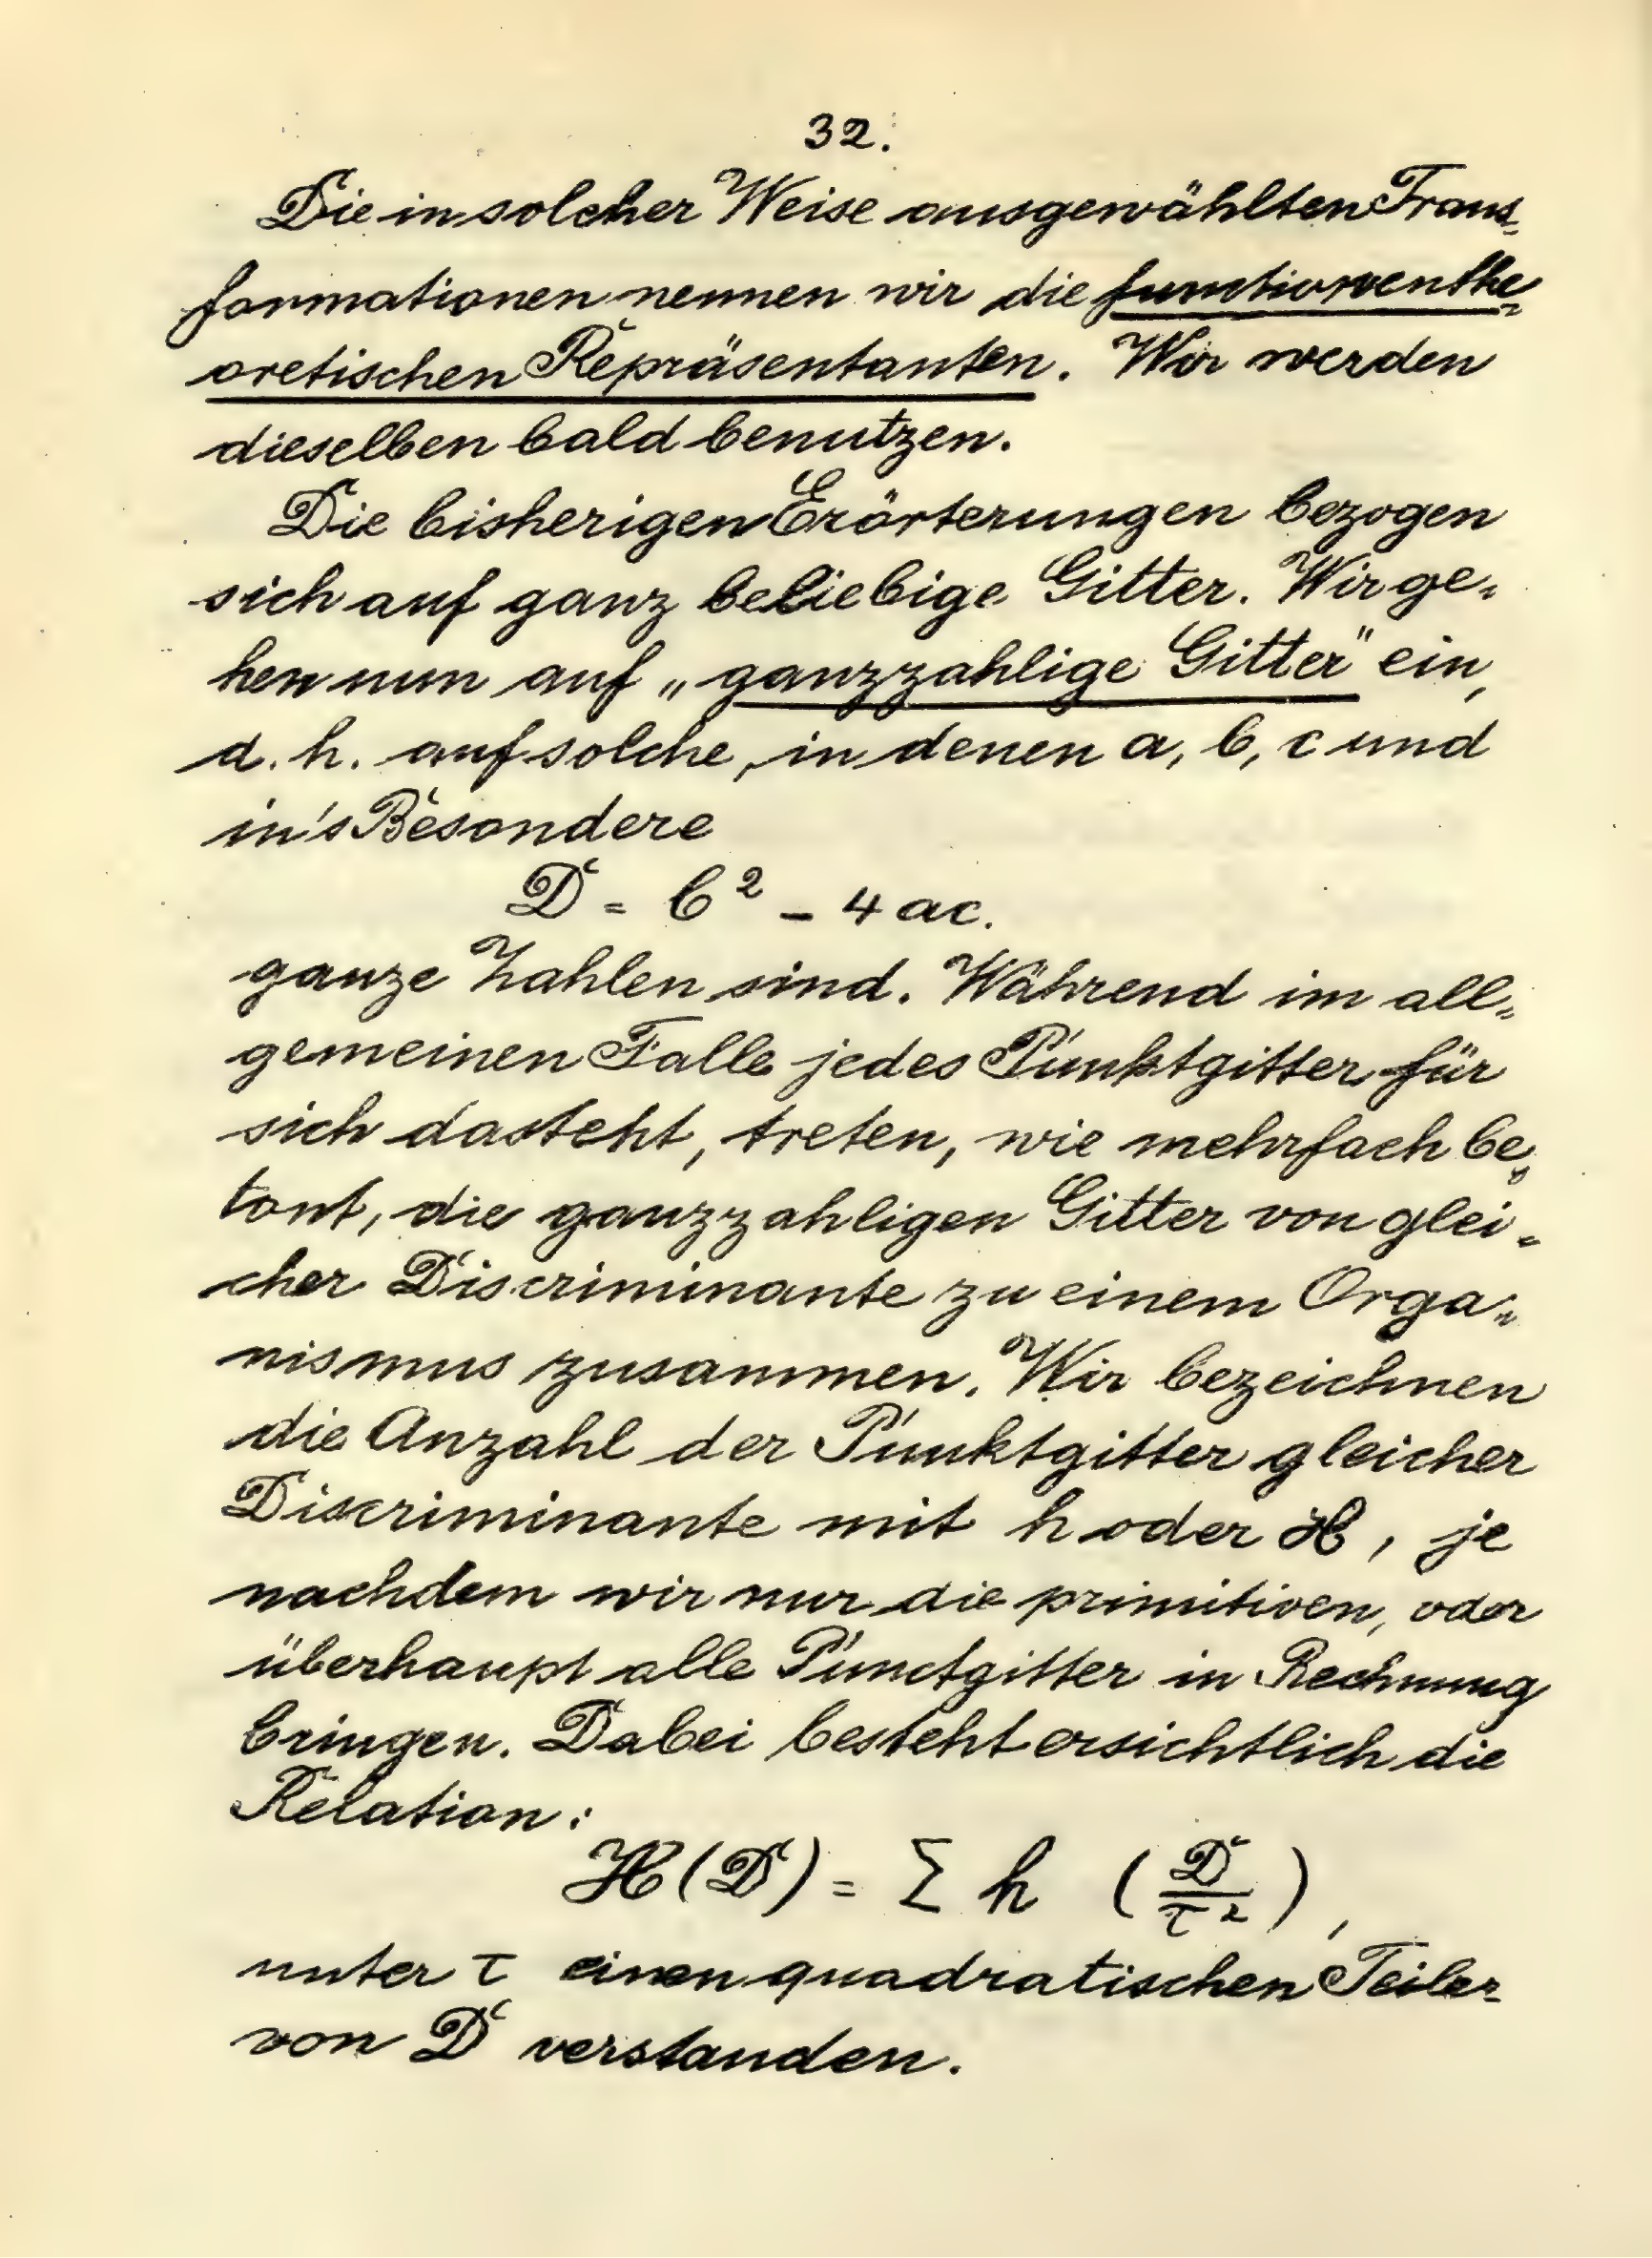 32.
Die in solcher Weise ausgewählten Trans-
formationen nennen wir die functionenthe-
oretischen Repräsentanten. Wir werden
dieselben bald benutzen.
Die bisherigen Erörterungen bezogen
sich auf ganz beliebige Gitter. Wir ge-
hen nun auf „ganzzahlige Gitter" ein,
d. h. auf solche, in denen a, b, c und
in's Besondere
D = b² - 4ac.
ganze Zahlen sind. Während im all-
gemeinen Falle jedes Punktgitter für
sich dasteht, treten, wie mehrfach be-
tont, die ganzzahligen Gitter von glei-
cher Discriminante zu einem Orga-
nismus zusammen. Wir bezeichnen
die Anzahl der Punktgitter gleicher
Discriminante mit h oder H, je
nachdem wir nur die primitiven, oder
überhaupt alle Punctgitter in Rechnung
bringen. Dabei besteht ersichtlich die
Relation:
H(D) = Σ h (D/τ²),
unter τ einen quadratischen Teiler
von D verstanden.